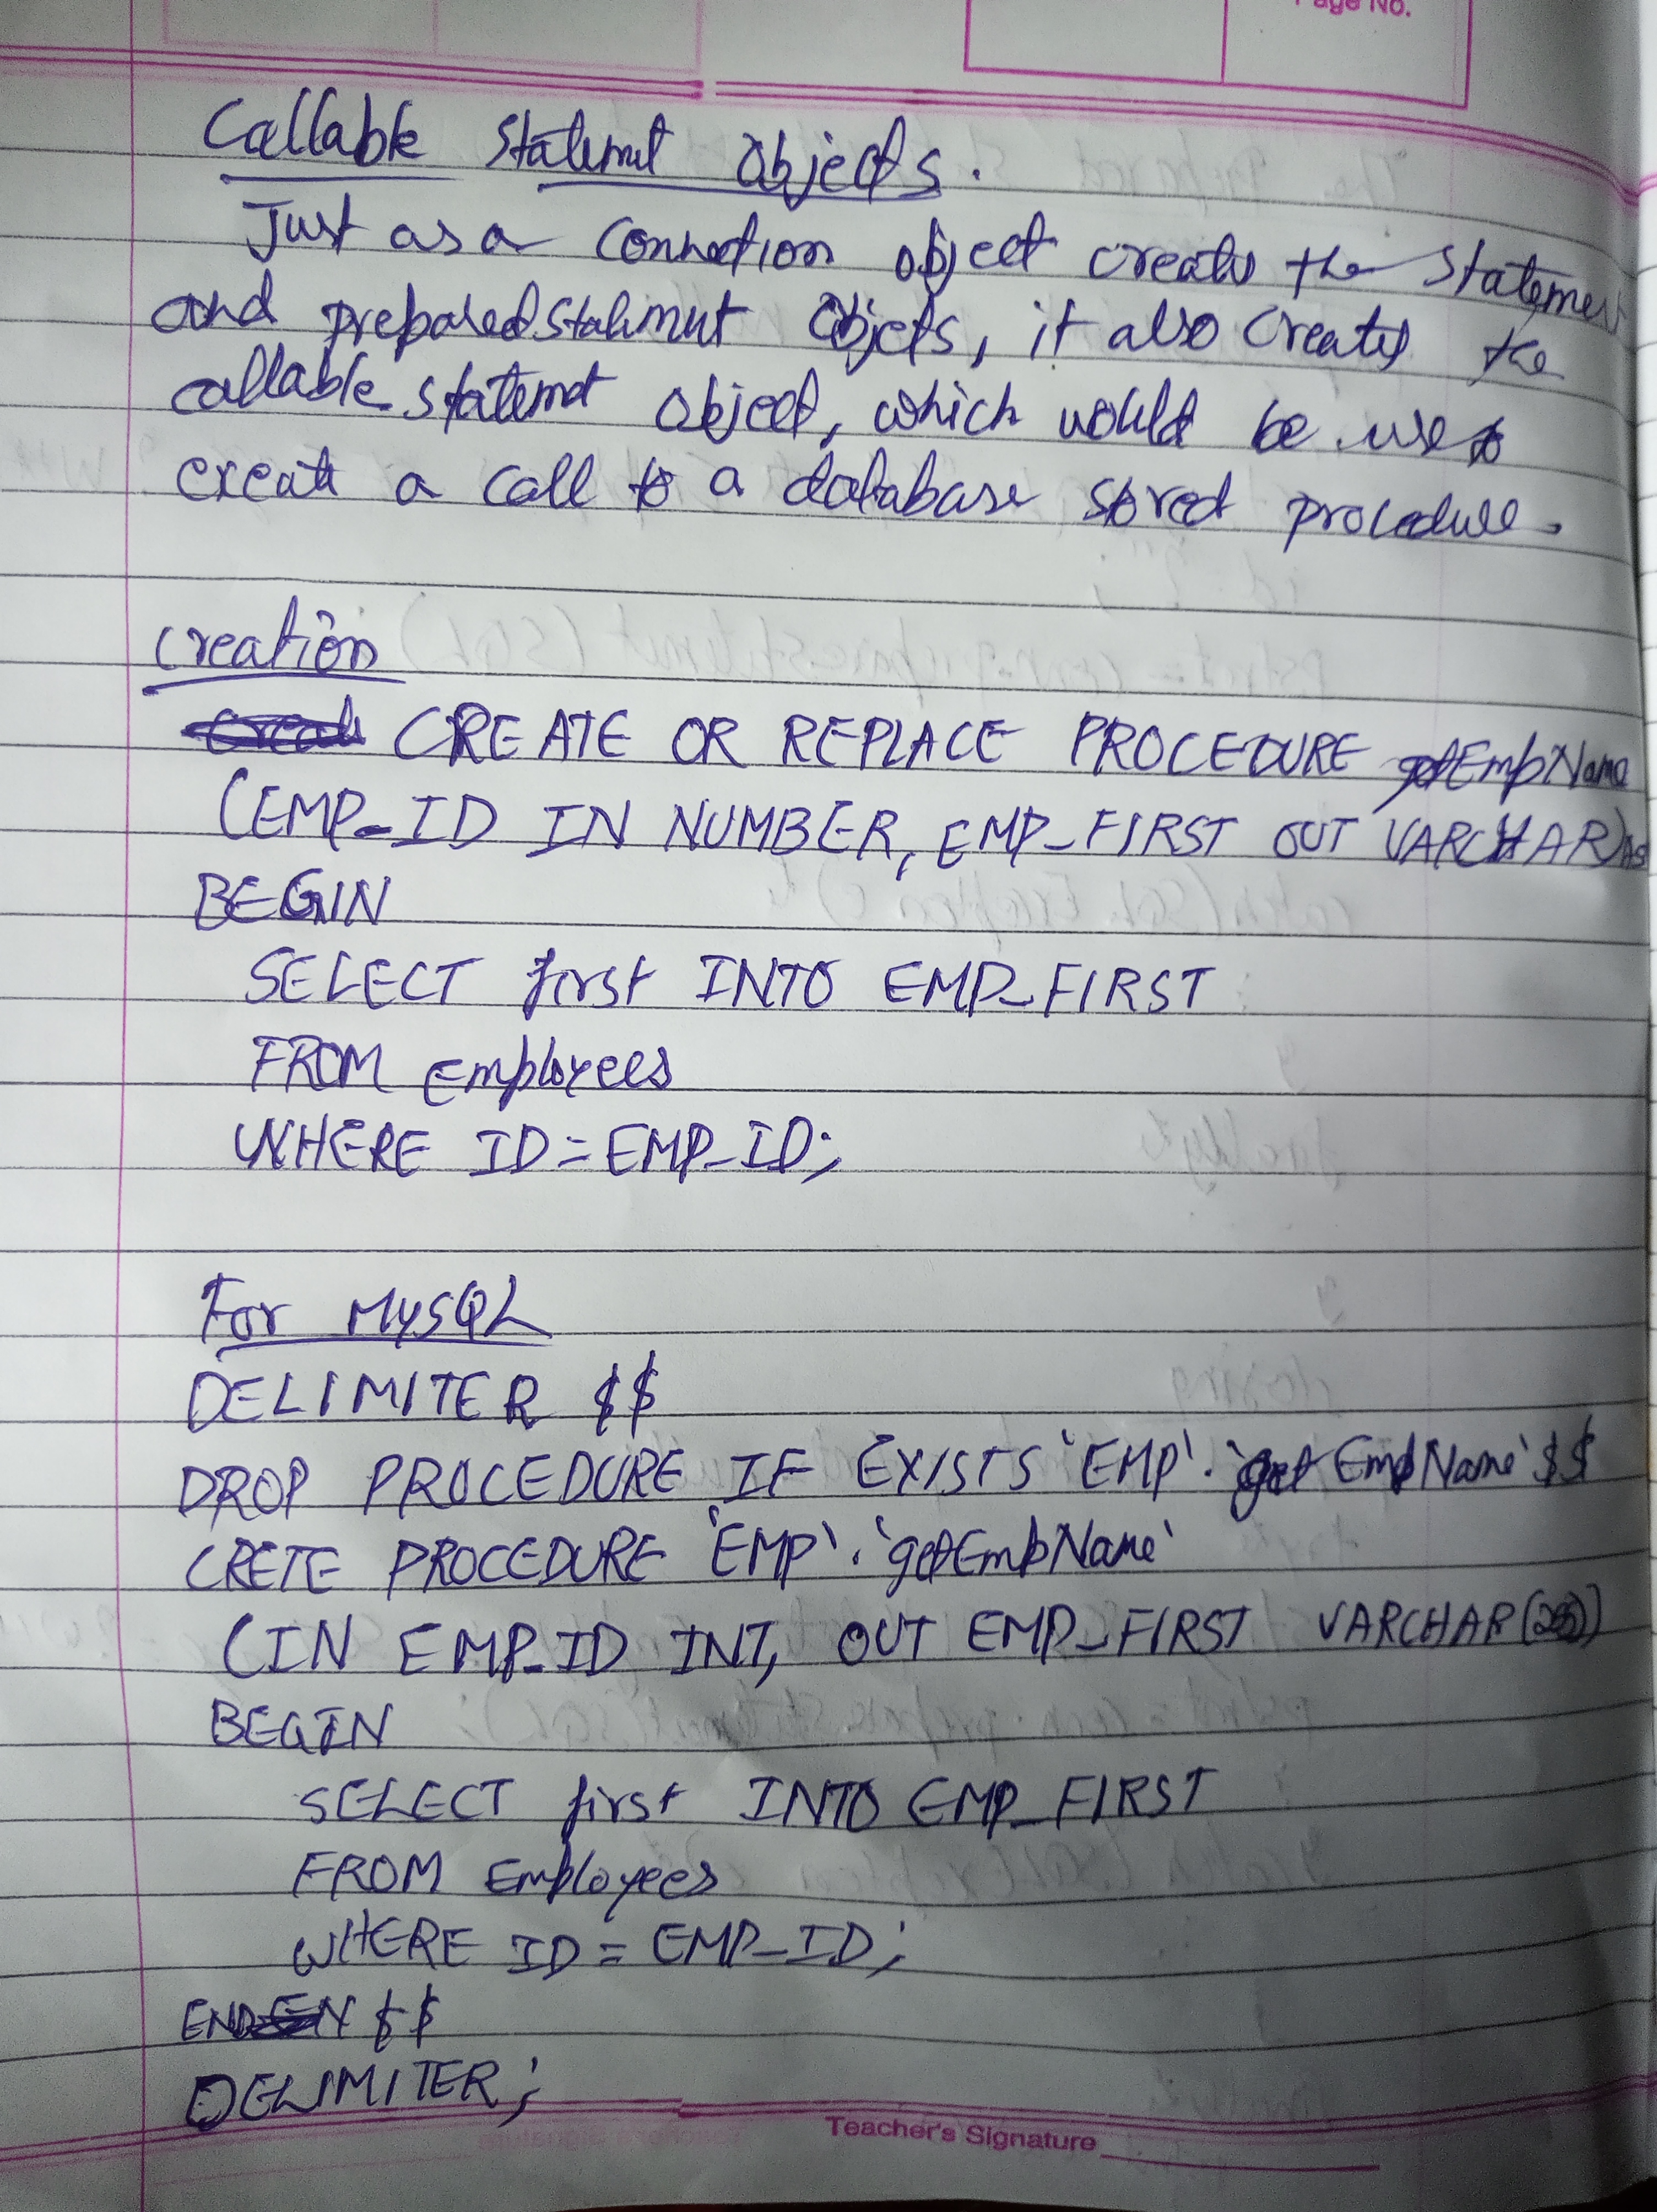 Page No.
Callable Statemnt Objects.
Just as a Connection object creates the Statement
and preparedStatemnt Objects, it also creates the
callable Statemnt object, which would be use to
execute a call to a database stored procedure.
creation
CREATE OR REPLACE PROCEDURE getEmpName
(EMP_ID IN NUMBER, EMP_FIRST OUT VARCHAR) AS
BEGIN
SELECT first INTO EMP_FIRST
FROM Employees
WHERE ID = EMP_ID;
For MySQL
DELIMITER $$
DROP PROCEDURE IF EXISTS `EMP`.`getEmpName`$$
CRETE PROCEDURE `EMP`.`getEmpName`
(IN EMP_ID INT, OUT EMP_FIRST VARCHAR(255))
BEGIN
SELECT first INTO EMP_FIRST
FROM Employees
WHERE ID = EMP_ID;
END $$
DELIMITER;
Teacher's Signature